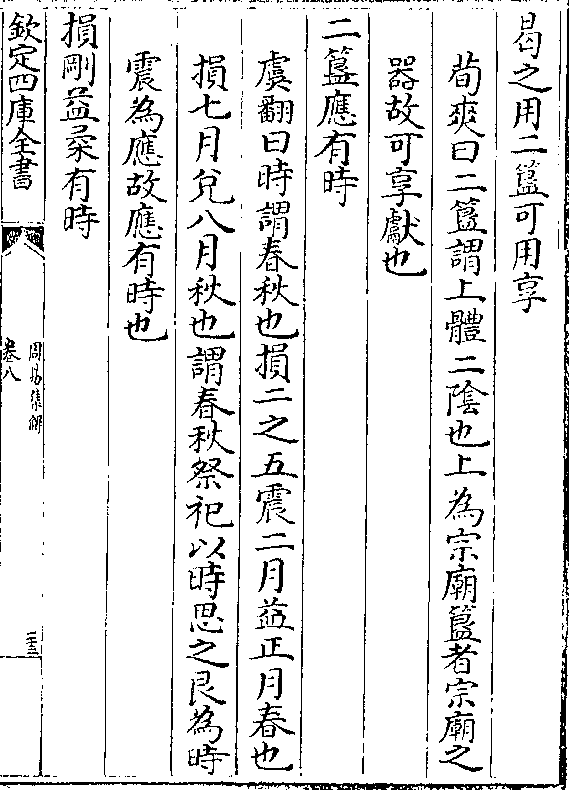 曷之用二簋可用享
荀爽曰二簋謂上體二陰也上為宗廟簋者宗廟之
器故可享獻也
二簋應有時
虞翻曰時謂春秋也損二之五震二月益正月春也
損七月兌八月秋也謂春秋祭祀以時思之艮為時
震為應故應有時也
損剛益柔有時
欽定四庫全書
周易集解
卷八